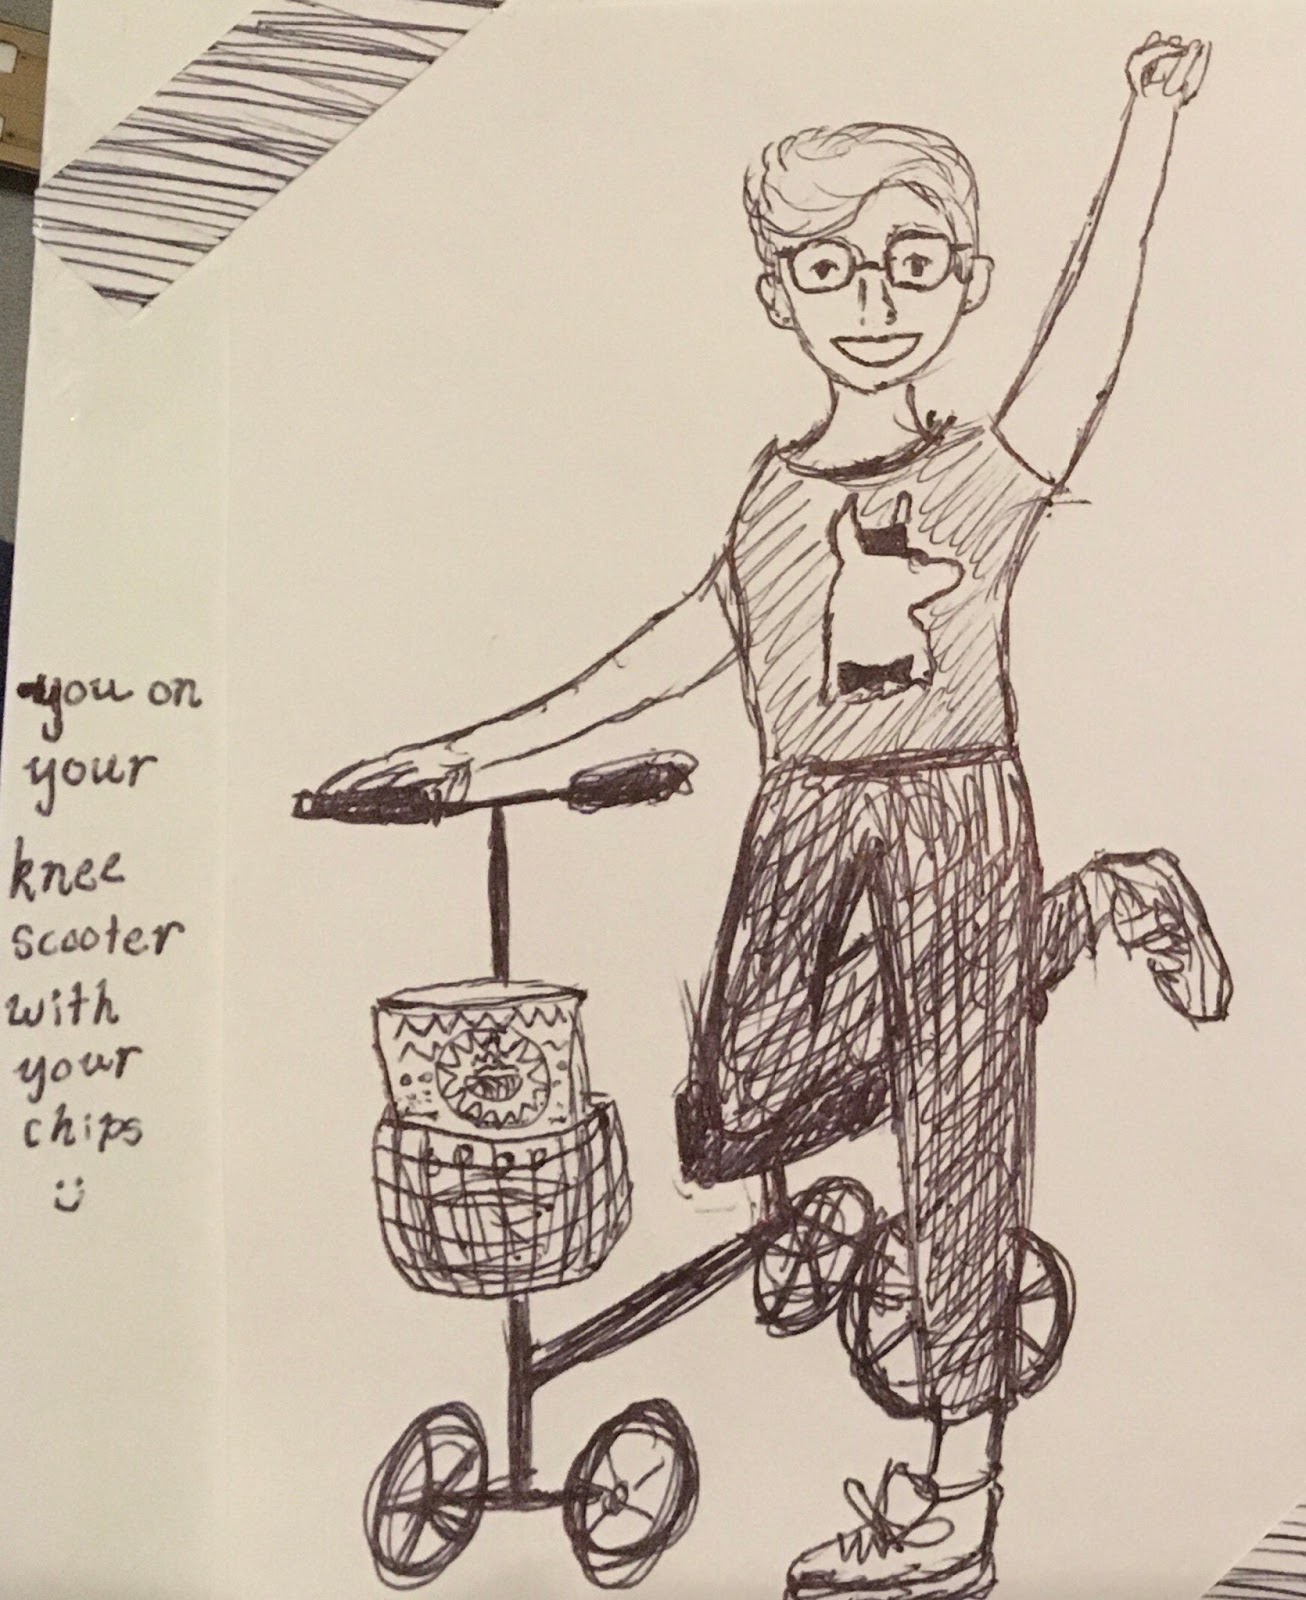 you on
your
knee
scooter
with
your
chips
:)